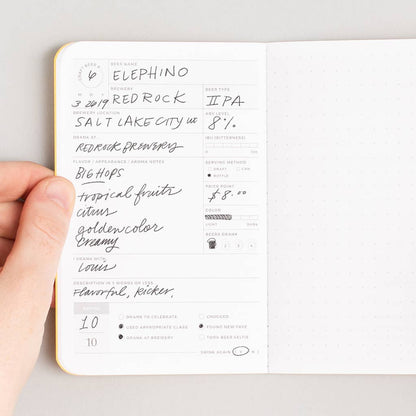 CRAFT BEER #
6
BEER NAME
ELEPHINO
BREWERY
BEER TYPE
M D Y
3 26 19
RED ROCK
IIPA
BREWERY LOCATION
ABV LEVEL
SALT LAKE CITY
8%
DRANK AT
IBU (BITTERNESS)
REDROCK BREWERY
FLAVOR / APPEARANCE / AROMA NOTES
SERVING METHOD
BIG HOPS
DRAFT CAN
BOTTLE
tropical fruits
PRICE POINT
$8.00
citrus
COLOR
golden color
LIGHT DARK
creamy
BEERS DRANK
2 3 4
DRANK WITH
Louis
DESCRIPTION IN 3 WORDS OR LESS
Flavorful, Kicker.
10
10
DRANK TO CELEBRATE
CHUGGED
USED APPROPRIATE GLASS
FOUND NEW FAVE
DRANK AT BREWERY
TOOK BEER SELFIE
DRINK AGAIN Y N